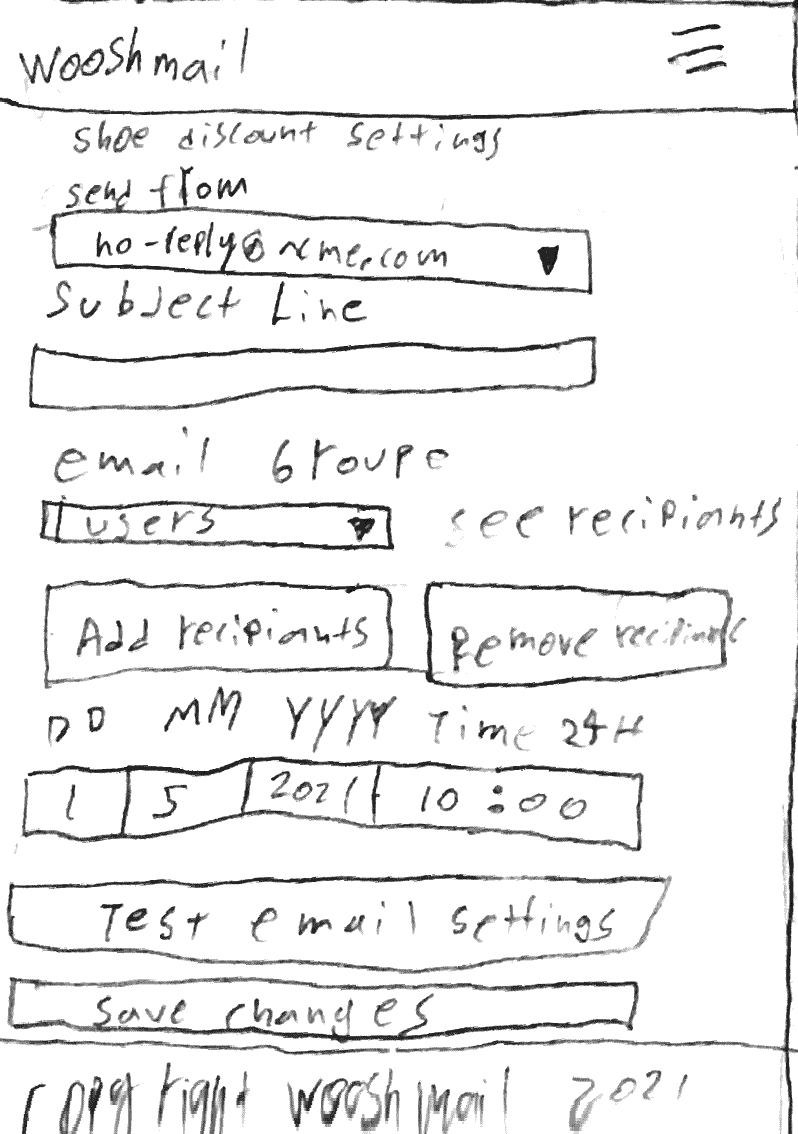 wooshmail
shoe discount settings
send from
no-reply@acme.com
Subject Line
email Groupe
users
see recipiants
Add recipiants
Remove recipiants
DD MM YYYY Time 24H
1 5 2021 10:00
Test email settings
save changes
copyright wooshmail 2021